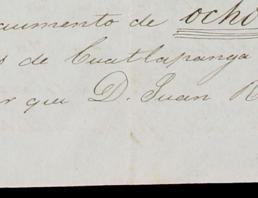 cumento de ocho
s de Cuatlapanga
r que D. Juan R